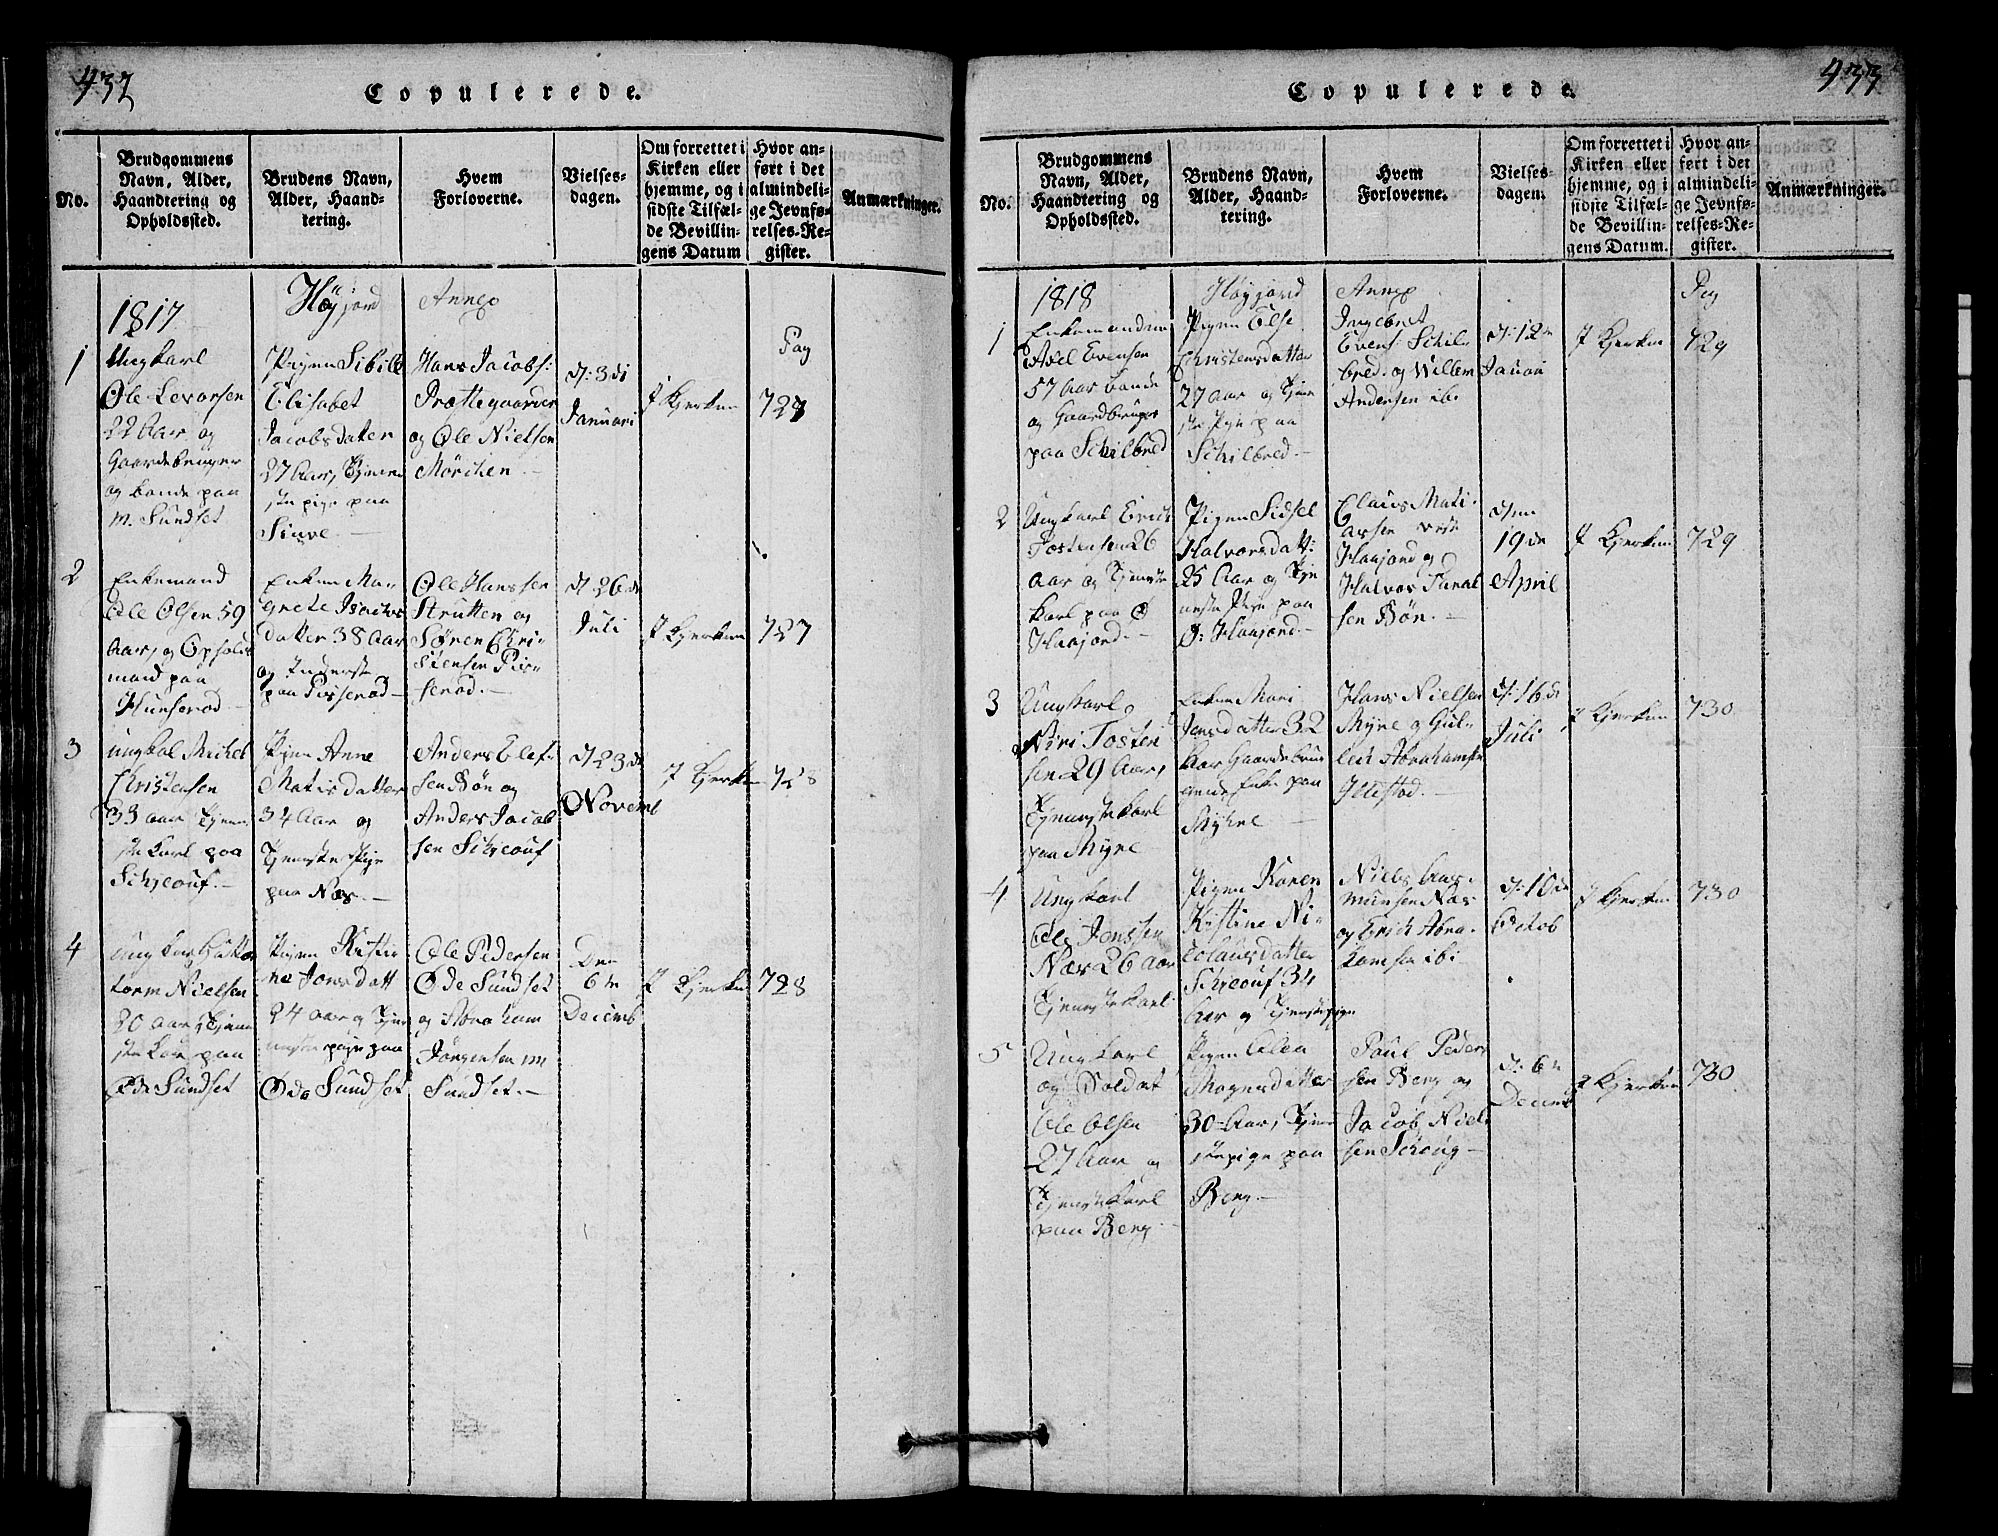 432
Copulerede.
No.
Brudgommens
Navn, Alder,
Haandtering og
Opholdssted.
Brudens Navn,
Alder, Haand-
tering.
Hvem
Forloverne.
Vielses-
dagen.
Om forrettet i
Kirken eller
hjemme, og i
sidste Tilfæl-
de Bevillin-
gens Datum
Hvor an-
ført i det
almindeli-
ge Jevnfø-
relses-Re-
gister.
Anmærkninger.
1817
Høyjord
Annex
Pag
1
Ungkarl
Ole Levorsen
22 Aar og
Gaardebruger
og bonde paa
m. Sundset
Pigen Sibille
Elisabet
Jacobsdatter
27 Aar, Tjene
ste pige paa
Hans Jacobs:
Præstegaarden
og Ole Nielsen
d: 3di
Januari
I Kjerken
727
2
Enkemand
Ole Olsen 59
Aar, og Opholds
mand paa
Hunserød
Enken Ma-
grete Isachs
datter 38 Aar
og Inderst
paa Pisserød
Ole Hanssen
Strutten og
Søren Chri-
stensen Pis-
serød.
d 26de
Juli
I Kjerken
727
3
Ungkal Michel
Christensen
33 aar Tjene
ste karl paa
Schjeouf.
Pigen Anne
Matisdatter
34 Aar og
Tjeneste Pige
paa Næs.
Anders Elef-
sen Bøn og
Anders Jacob
sen Schjeouf
d 23de
Novemb
I Kjerken
728
4
Nielsen
20 aar, Tjene
ste kar paa
Øde Sundset
Pigen Kisti-
ne Jonsdatt
24 aar og Tjen
neste pige paa
Øde Sundset
Ole Pedersen
Øde Sundset
og Abraham
Jørgensen m
Sundset.
Den
6te
Decemb
I Kjerken
728
433
Copulerede.
No.
Brudgommens
Navn, Alder,
Haandtering og
Opholdssted.
Brudens Navn,
Alder, Haand-
tering.
Hvem
Forloverne.
Vielses-
dagen.
Om forrettet i
Kirken eller
hjemme, og i
sidste Tilfæl-
de Bevillin-
gens Datum.
Hvor an-
ført i det
almindeli-
ge Jevnfø-
relses-Re-
gister.
Anmærkninger.
1818
Høyjord
Annex
Pag
1
Enkemanden
Axel Evensen
57 Aar bonde
og Gaardbruger
paa Schilbred
Pigen Else
Christensdatter
27 aar og Tjene
ste Pige paa
Schilbred.
Ingebret
Evens: Schil-
bred. og Willem
Andersen ibi
d: 12te
Januari
I Kjerken
729
2
Ungkarl Erich
Tostensen 26
aar og Tjeneste
karl paa Ø
Haajord.
Pigen Sidsel
Halvorsdatt:
25 Aar og Tje
neste Pige paa
Ø: Haajord.
Claus Mati
assen
Haajord og
Halvor
sen Bøn.
den
19de
April
I Kjerken
729
3
Ungkarl
Tosten
sen 29 Aar,
Tjenestekarl
paa Myre
Enken Mari
Jensdatter 32
Aar Gaardebru
gende Enke paa
Hans Nielsen
Myre og Gul-
lich Abrahamsen
d: 16de
Juli
I Kjerken
730
4
Ungkarl
Ole Jonssen
Næs 26 Aar
Tjenestekarl
Pigen Karen
Kistine Ni-
colausdatter
Schjeouf 34
Aar og Tjenestepige
Niels Ras-
munsen Næs
og Erich Abra-
hamsen ibi
d: 10de
Octob
I Kjerken
730
5
Ungkarl
og Soldat
Ole Olsen
27 Aar og
Tjenestekarl
paa Berg
Pigen Olea
Mogensdatter
30 Aar, Tjene
stepige paa
Berg.
Paul Peder
sen Berg og
Jacob Niel
sen
d: 6te
Decemb
I Kjerken
730